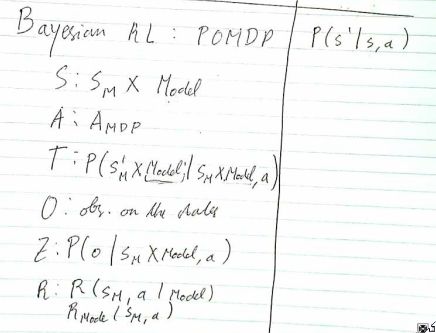 Bayesian RL : POMDP
P(s'|s,a)
S: S_M X Model
A: A_MDP
T: P(S'_M X Model'| S_M X Model, a)
O: obs. on the states
Z: P(o | S_M X Model, a)
R: R(S_M, a | Model)
R_Model(S_M, a)